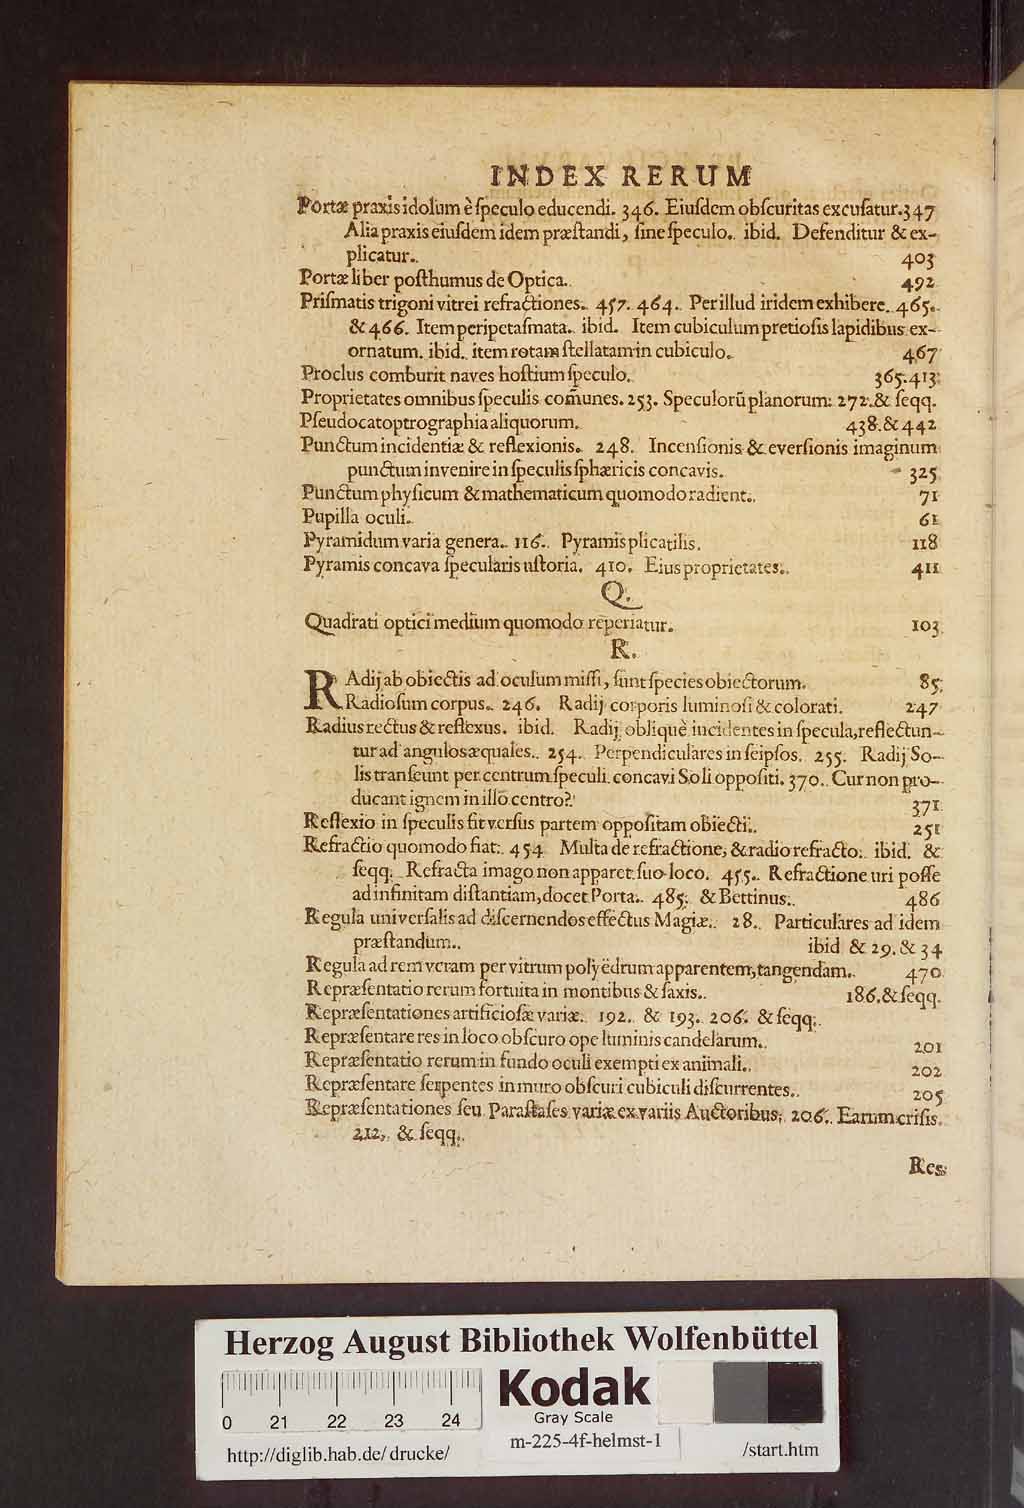 INDEX RERUM
Portæ praxis idolum è ſpeculo educendi. 346. Eiuſdem obſcuritas excuſatur. 347
Alia praxis eiuſdem idem præſtandi, ſine ſpeculo. ibid. Defenditur & ex-
plicatur. 403
Portæ liber poſthumus de Optica. 492
Priſmatis trigoni vitrei refractiones. 457. 464. Per illud iridem exhibere. 465.
& 466. Item peripetaſmata. ibid. Item cubiculum pretioſis lapidibus ex-
ornatum. ibid. item rotam ſtellatam in cubiculo. 467
Proclus comburit naves hoſtium ſpeculo. 365. 413
Proprietates omnibus ſpeculis com̄unes. 253. Speculorũ planorum. 272. & ſeqq.
Pſeudocatoptrographia aliquorum. 438. & 442
Punctum incidentiæ & reflexionis. 248. Incenſionis & everſionis imaginum
punctum invenire in ſpeculis ſphæricis concavis. 325
Punctum phyſicum & mathematicum quomodo radient. 71
Pupilla oculi. 61
Pyramidum varia genera. 116. Pyramis plicatilis. 118
Pyramis concava ſpecularis uſtoria. 410. Eius proprietates. 411
Q.
Quadrati optici medium quomodo reperiatur. 103
R.
RAdij ab obiectis ad oculum miſſi, ſunt ſpecies obiectorum. 85
Radioſum corpus. 246. Radij corporis luminoſi & colorati. 247
Radius rectus & reflexus. ibid. Radij obliquè incidentes in ſpecula, reflectun-
tur ad angulos æquales. 254. Perpendiculares in ſeipſos. 255. Radij So-
lis tranſeunt per centrum ſpeculi concavi Soli oppoſiti. 370. Cur non pro-
ducant ignem in illo centro? 371
Reflexio in ſpeculis fit verſus partem oppoſitam obiecti. 251
Refractio quomodo fiat. 454 Multa de refractione, & radio refracto. ibid. &
ſeqq. Refracta imago non apparet ſuo loco. 455. Refractione uri poſſe
ad infinitam diſtantiam, docet Porta. 485. & Bettinus. 486
Regula univerſalis ad diſcernendos effectus Magiæ. 28. Particulares ad idem
præſtandum. ibid & 29. & 34
Regula ad rem veram per vitrum polyëdrum apparentem, tangendam. 470
Repræſentatio rerum fortuita in montibus & ſaxis. 186. & ſeqq.
Repræſentationes artificioſæ variæ. 192. & 193. 206. & ſeqq.
Repræſentare res in loco obſcuro ope luminis candelarum. 201
Repræſentatio rerum in fundo oculi exempti ex animali. 202
Repræſentare ſerpentes in muro obſcuri cubiculi diſcurrentes. 205
Repræſentationes ſeu Paraſtaſes variæ ex variis Auctoribus. 206. Earum criſis.
212. & ſeqq.
Res
Herzog August Bibliothek Wolfenbüttel
0 21 22 23 24
Kodak
Gray Scale
http://diglib.hab.de/drucke/ m-225-4f-helmst-1 /start.htm